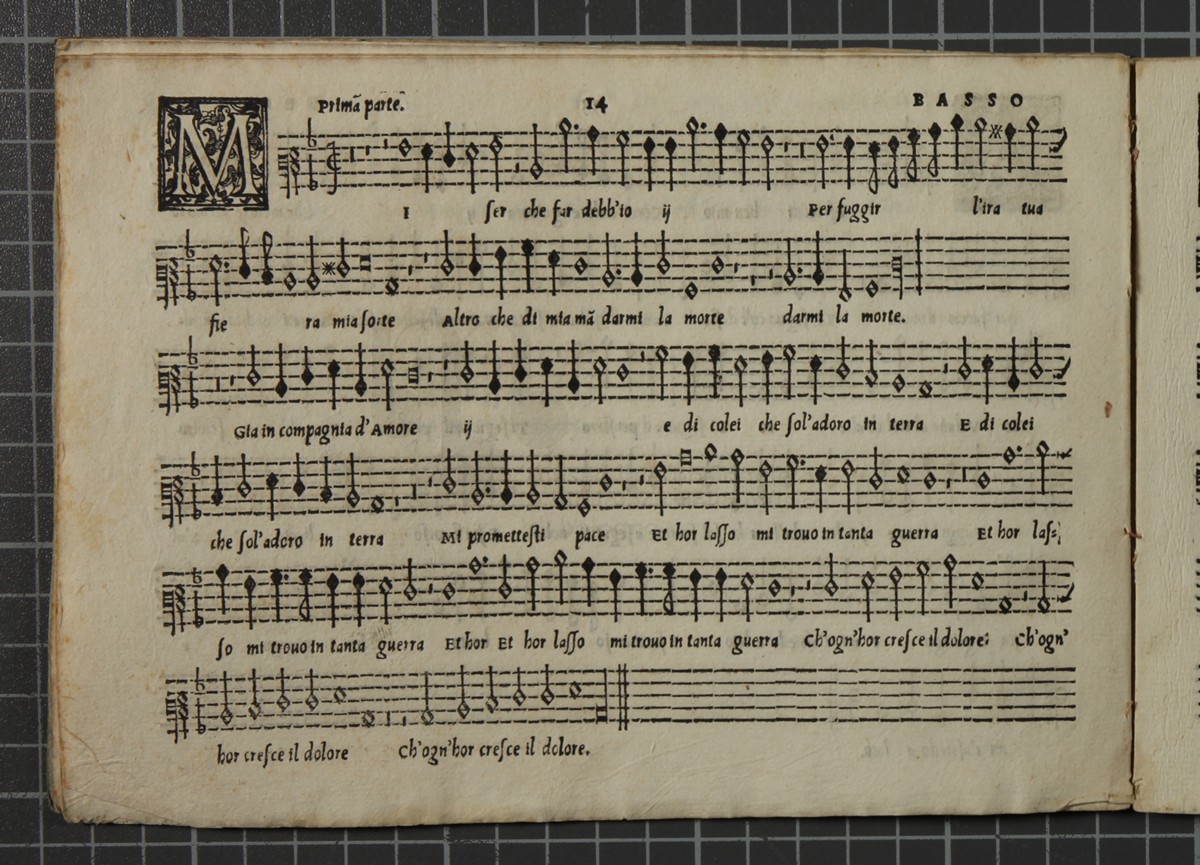 Primã parte. 14 BASSO
MI ser che far debb'io ij Per fuggir l'ira tua
fie ra mia sorte Altro che di mia mã darmi la morte darmi la morte.
Gia in compagnia d'Amore ij e di colei che sol'adoro in terra E di colei
che sol'adoro in terra Mi promettesti pace Et hor lasso mi trouo in tanta guerra Et hor las:
so mi trouo in tanta guerra Et hor Et hor lasso mi trouo in tanta guerra Ch'ogn'hor cresce il dolore: Ch'ogn'
hor cresce il dolore Ch'ogn'hor cresce il dolore.